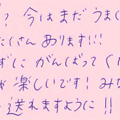 ? 今はまだうま
たくさんあります!!!
ずにがんばってく
が楽しいです! み
送れますように!!